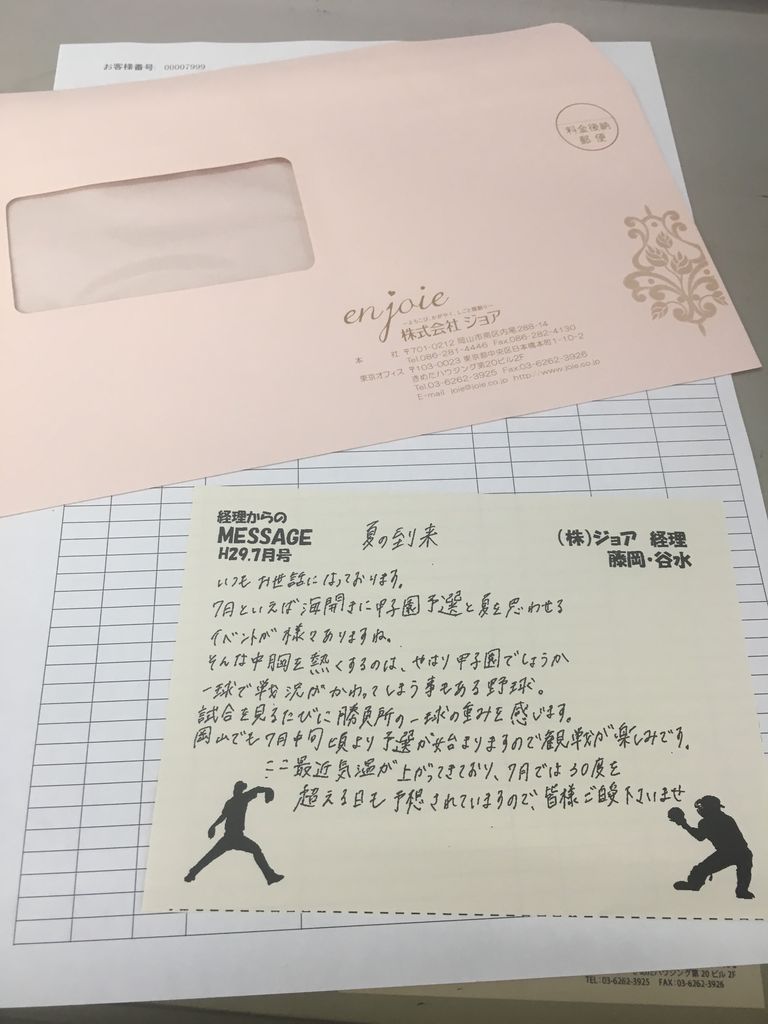 お客様番号 00007999
料金後納
郵便
enjoie
株式会社 ジョア
本 社 〒701-0212 岡山市南区内尾288-14
Tel.086-281-4446 Fax.086-282-4130
東京オフィス 〒103-0023 東京都中央区日本橋本町1-10-2
きめたハウジング第20ビル2F
Tel.03-6262-3925 Fax.03-6262-3926
E-mail joie@joie.co.jp http://www.joie.co.jp
経理からの
MESSAGE
H29.7月号
夏の到来
(株)ジョア 経理
藤岡・谷水
いつもお世話になっております。
7月といえば海開きに甲子園予選と夏を思わせる
イベントが様々ありますね。
そんな中胸を熱くするのは、やはり甲子園でしょうか
一球で戦況がかわってしまう事もある野球。
試合を見るたびに勝負所の一球の重みを感じます。
岡山でも7月中旬頃より予選が始まりますので観戦が楽しみです。
ここ最近気温が上がってきており、7月では30度を
超える日も予想されていますので、皆様ご自愛下さいませ
ハウジング第20ビル2F
TEL:03-6262-3925 FAX:03-6262-3926